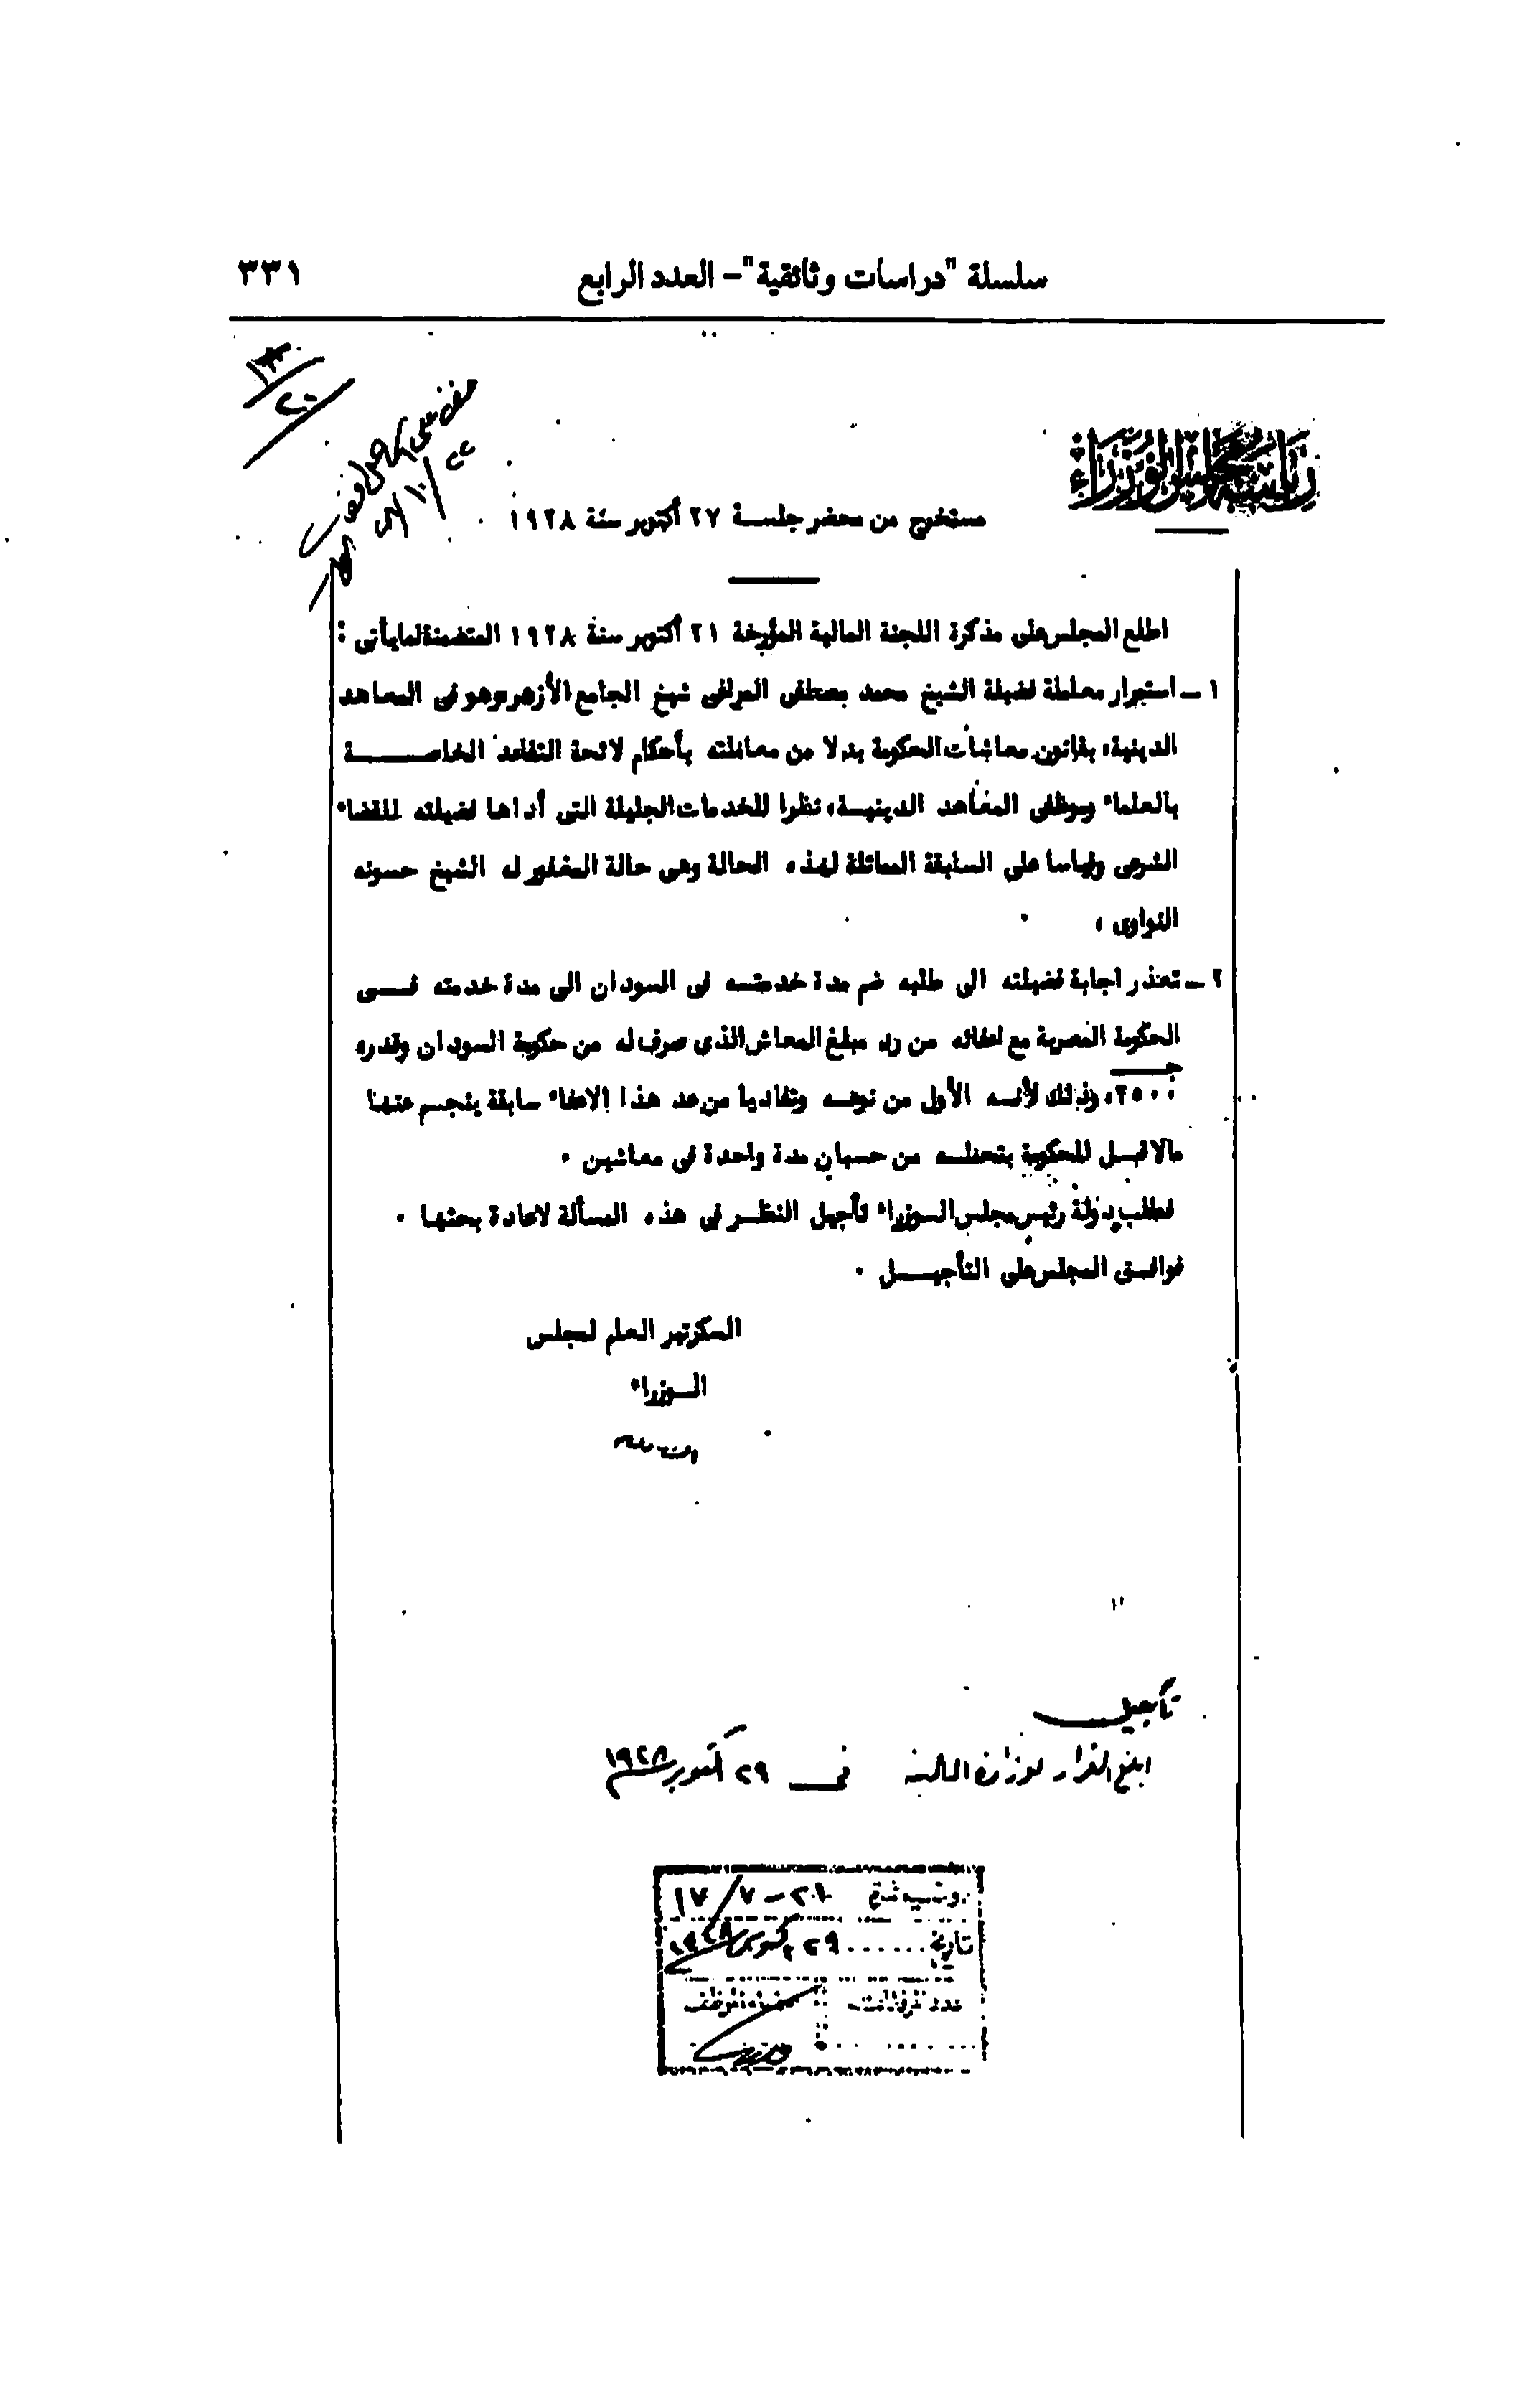 سلسلة "دراسات وثائقية" – العدد الرابع ٣٣١
رياسة مجلس الوزراء
مستخرج من محضر جلسة ٢٧ أكتوبر سنة ١٩٢٨
اطلع المجلس على مذكرة اللجنة المالية المؤرخة ٢١ أكتوبر سنة ١٩٢٨ المتضمنة لمايأتى :
١ – استمرار معاملة فضيلة الشيخ محمد مصطفى المراغى شيخ الجامع الأزهر وهو فى المعاهد
الدينية، بقانون معاشات الحكومة بدلا من معاملته بأحكام لائحة التقاعد الخاصة
بالعلماء وموظفى المعاهد الدينية، نظرا للخدمات الجليلة التى أداها فضيلته للقضاء
الشرعى وقياسا على السابقة المماثلة لهذه الحالة وهى حالة المغفور له الشيخ حسونه
النواوى ،
٢ – تعذر اجابة فضيلته الى طلبه ضم مدة خدمته فى السودان الى مدة خدمته فى
الحكومة المصرية مع اعفائه من رد مبلغ المعاش الذى صرف له من حكومة السودان وقدره
٢٥٠٠ج، وذلك لأنه الأول من نوعه وتفاديا من عد هذا الاعفاء سابقة ينجسم عنها
مالا قبل للحكومة بتحمله من حسبان مدة واحدة فى معاشين .
فطلب دولة رئيس مجلس الوزراء تأجيل النظر فى هذه المسألة لاعادة بحثها .
فوافق المجلس على التأجيل .
السكرتير العام لمجلس
الوزراء
تأجيل
ابلغ القرار لوزارة المالية فى ٢٩ أكتوبر ١٩٢٨
٢١ – ٧/١٧
تاريخ ٢٩ أكتوبر ١٩٢٨